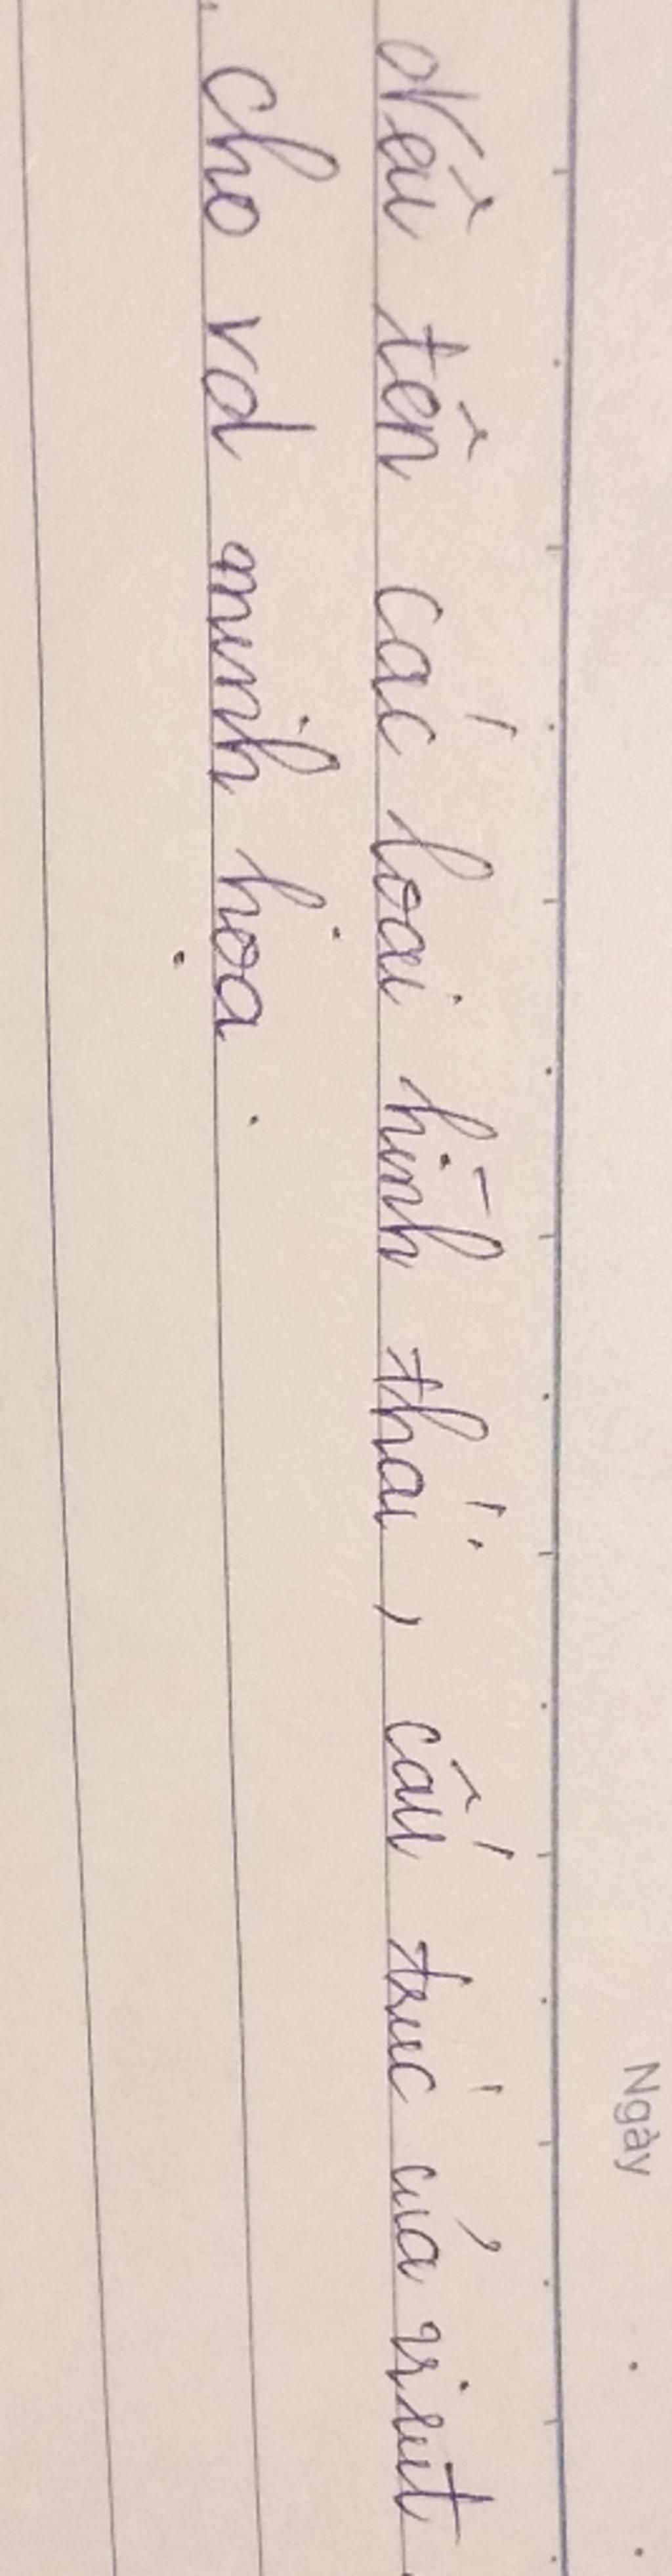 Ngày
Nêu tên các loại hình thái, cấu trúc của virut.
cho vd minh họa.